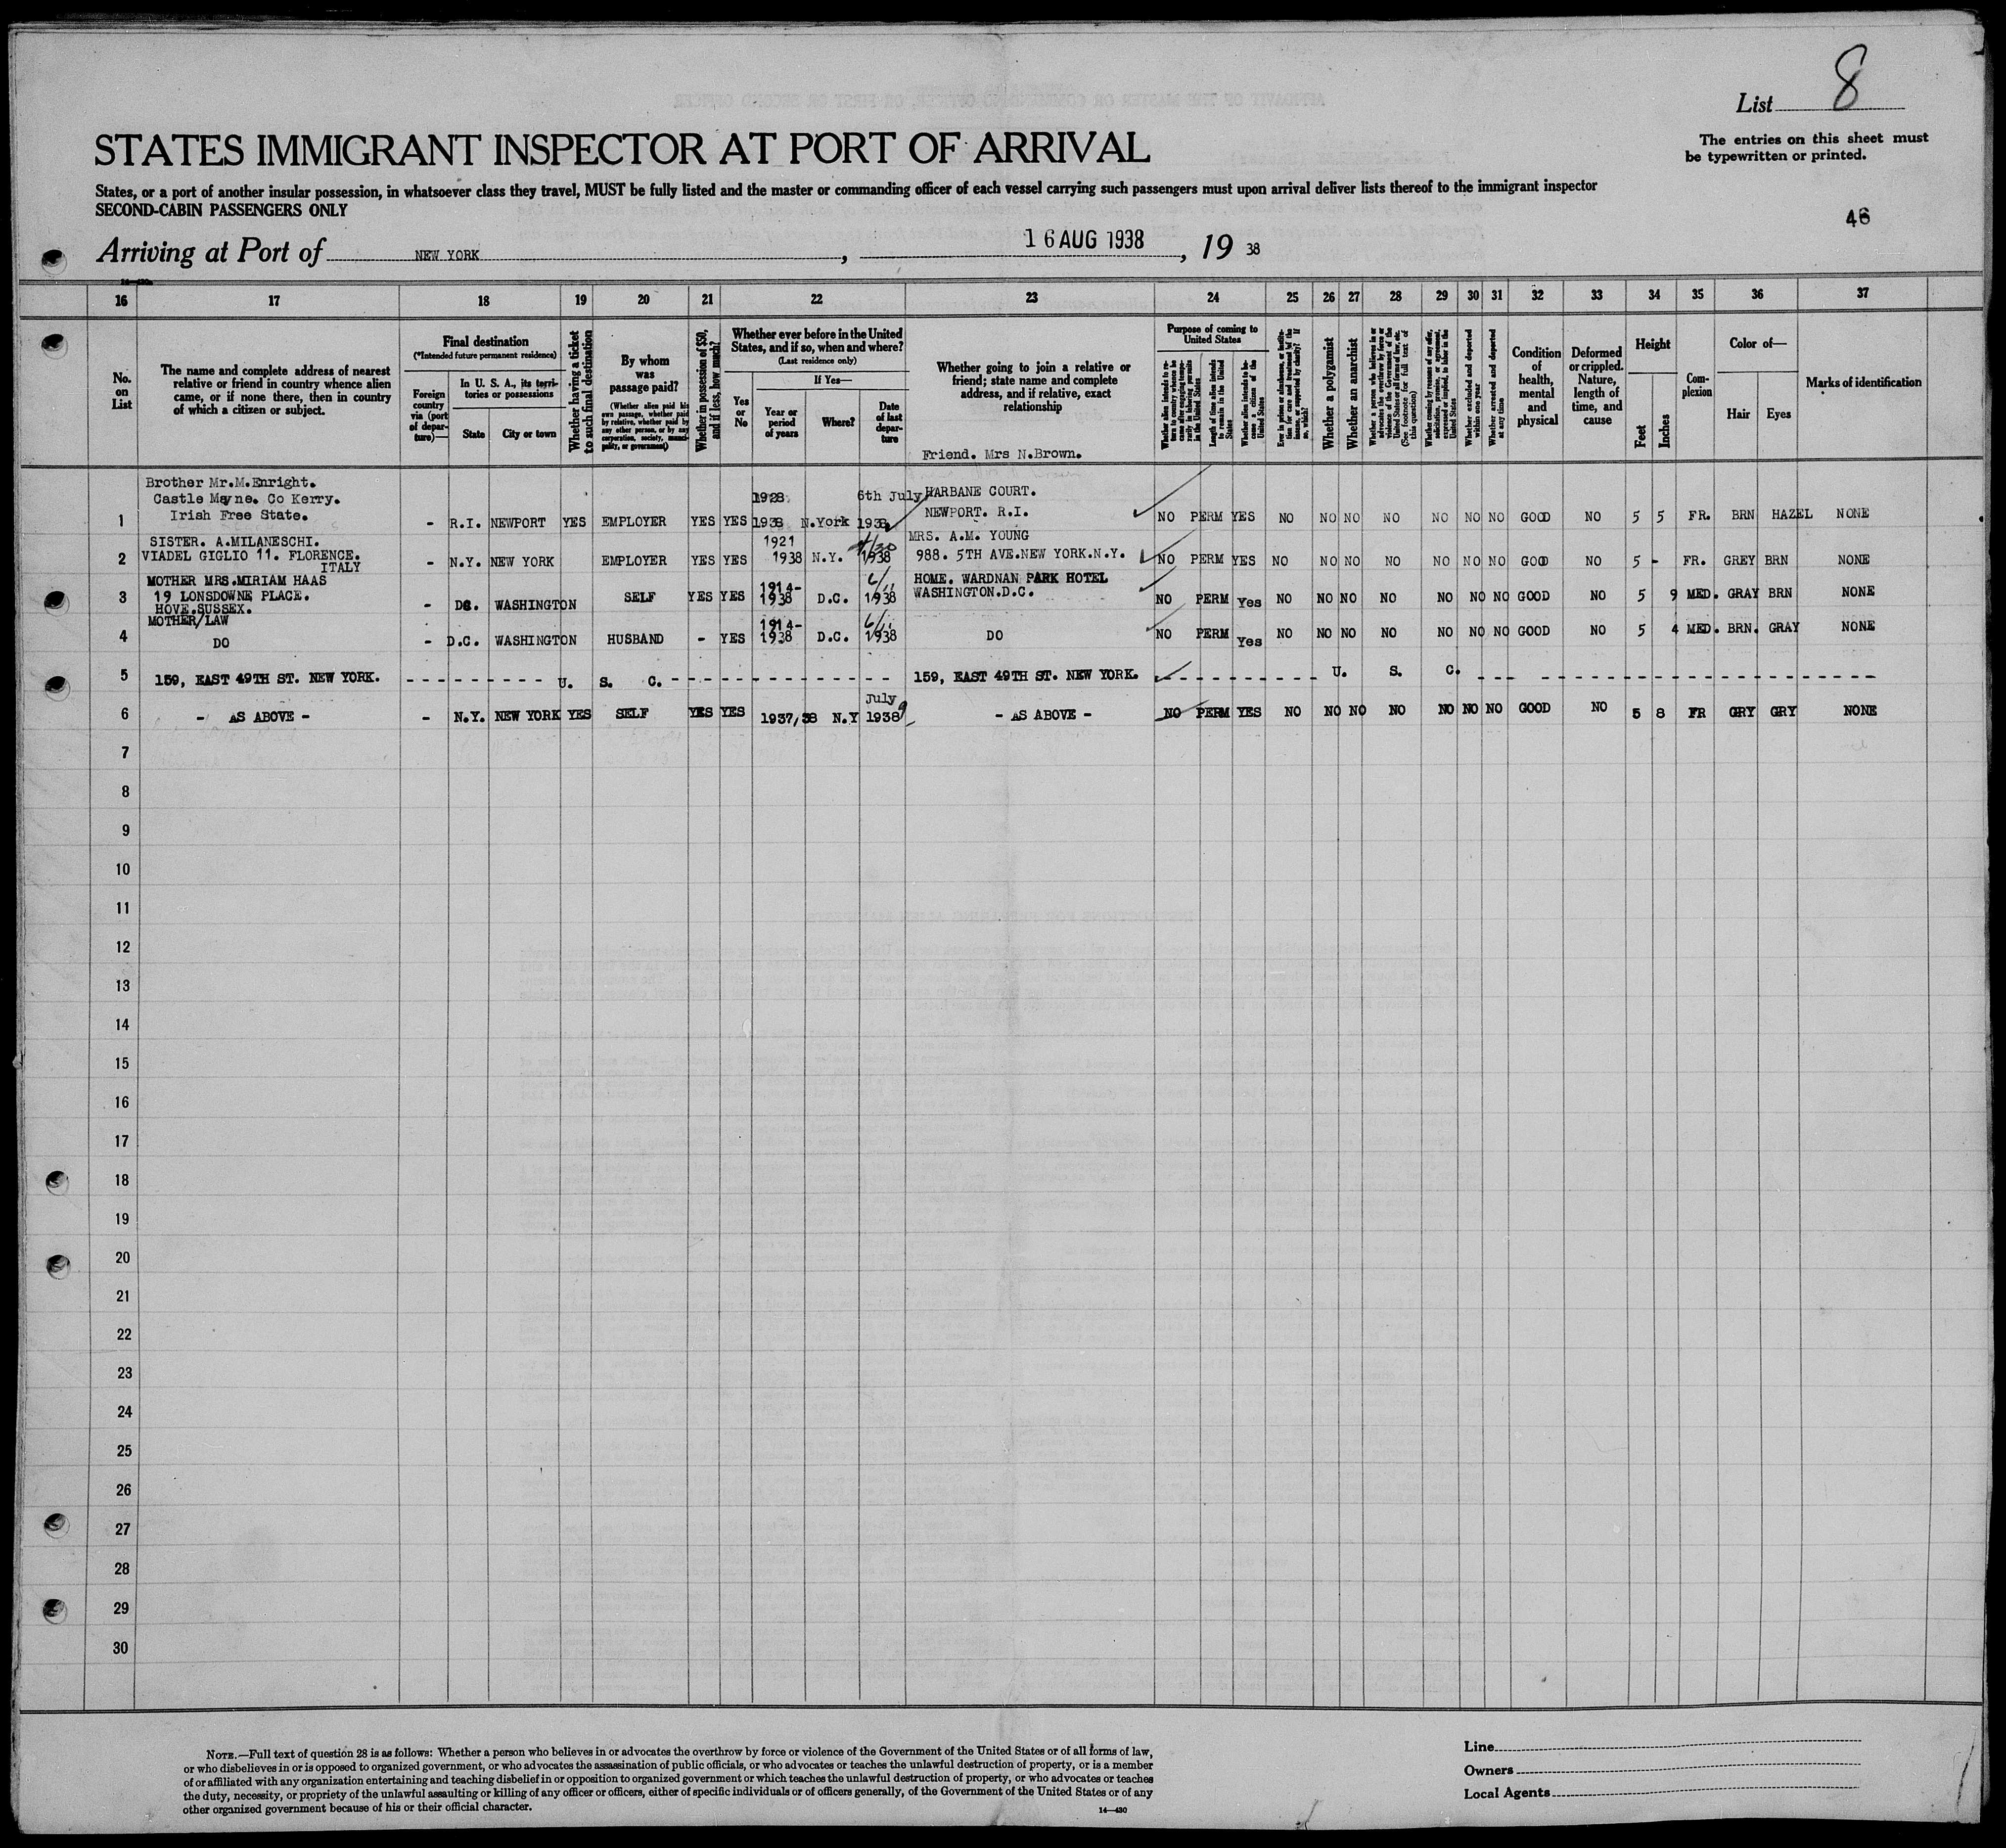 List 8
The entries on this sheet must
be typewritten or printed.
STATES IMMIGRANT INSPECTOR AT PORT OF ARRIVAL
States, or a port of another insular possession, in whatsoever class they travel, MUST be fully listed and the master or commanding officer of each vessel carrying such passengers must upon arrival deliver lists thereof to the immigrant inspector
SECOND-CABIN PASSENGERS ONLY
46
Arriving at Port of NEW YORK, 16 AUG 1938, 19 38
16 17 18 19 20 21 22 23 24 25 26 27 28 29 30 31 32 33 34 35 36 37
No. on List
The name and complete address of nearest
relative or friend in country whence alien
came, or if none there, then in country
of which a citizen or subject.
Final destination
(*Intended future permanent residence)
Foreign country via (port of departure)—
In U. S. A., its territories or possessions
State
City or town
Whether having a ticket to such final destination
By whom was passage paid?
(Whether alien paid his own passage, whether paid by relative, whether paid by any other person, or by any corporation, society, municipality, or government)
Whether in possession of $50, and if less, how much?
Whether ever before in the United
States, and if so, when and where?
(Last residence only)
Yes or No
If Yes—
Year or period of years
Where?
Date of last departure
Whether going to join a relative or
friend; state name and complete
address, and if relative, exact
relationship
Purpose of coming to United States
Length of time alien intends to remain in the United States
Whether alien intends to become a citizen of the United States
Whether a polygamist
Whether an anarchist
Whether excluded and deported within one year
Whether arrested and deported at any time
Condition of health, mental and physical
Deformed or crippled. Nature, length of time, and cause
Height
Feet
Inches
Complexion
Color of—
Hair
Eyes
Marks of identification
Friend. Mrs N.Brown.
Brother Mr.M.Enright.
Castle Mayne. Co Kerry. 1928 6th July HARBANE COURT.
Irish Free State. NEWPORT. R.I.
1 - R.I. NEWPORT YES EMPLOYER YES YES 1938 N.York 1938 NO PERM YES NO NO NO NO NO NO NO GOOD NO 5 5 FR. BRN HAZEL NONE
SISTER. A.MILANESCHI. 1921 MRS. A.M. YOUNG
2 VIADEL GIGLIO 11. FLORENCE. ITALY - N.Y. NEW YORK EMPLOYER YES YES 1938 N.Y. 1938 988. 5TH AVE.NEW YORK.N.Y. NO PERM YES NO NO NO NO NO NO NO GOOD NO 5 - FR. GREY BRN NONE
MOTHER MRS.MIRIAM HAAS 1914- 6/11 HOME. WARDNAN PARK HOTEL
3 19 LONSDOWNE PLACE. - DC. WASHINGTON SELF YES YES 1938 D.C. 1938 WASHINGTON.D.C. NO PERM Yes NO NO NO NO NO NO NO GOOD NO 5 9 MED. GRAY BRN NONE
HOVE.SUSSEX.
MOTHER/LAW 1914- 6/11
4 DO - D.C. WASHINGTON HUSBAND - YES 1938 D.C. 1938 DO NO PERM Yes NO NO NO NO NO NO NO GOOD NO 5 4 MED. BRN. GRAY NONE
5 159, EAST 49TH ST. NEW YORK. U. S. C. 159, EAST 49TH ST. NEW YORK. U. S. C.
July 9
6 - AS ABOVE - - N.Y. NEW YORK YES SELF YES YES 1937/38 N.Y 1938 - AS ABOVE - NO PERM YES NO NO NO NO NO NO NO GOOD NO 5 8 FR GRY GRY NONE
7
8
9
10
11
12
13
14
15
16
17
18
19
20
21
22
23
24
25
26
27
28
29
30
NOTE.—Full text of question 28 is as follows: Whether a person who believes in or advocates the overthrow by force or violence of the Government of the United States or of all forms of law,
or who disbelieves in or is opposed to organized government, or who advocates the assassination of public officials, or who advocates or teaches the unlawful destruction of property, or is a member
of or affiliated with any organization entertaining and teaching disbelief in or opposition to organized government or which teaches the unlawful destruction of property, or who advocates or teaches
the duty, necessity, or propriety of the unlawful assaulting or killing of any officer or officers, either of specific individuals or of officers generally, of the Government of the United States or of any
other organized government because of his or their official character.
14—430
Line
Owners
Local Agents